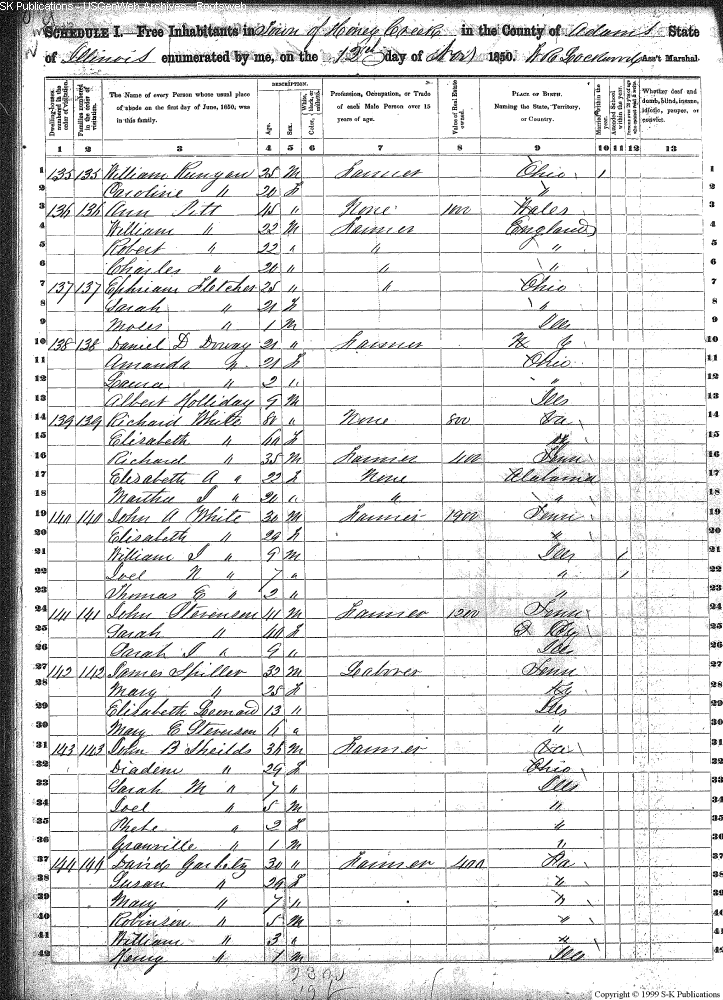 SK Publications - USGenWeb Archives - Rootsweb
SCHEDULE I. Free Inhabitants in Town of Honey Creek in the County of Adams State
of Illinois enumerated by me, on the 13th day of Nov 1850. Ass't Marshal.
Dwelling-houses numbered in the order of visitation.
Families numbered in the order of visitation.
The Name of every Person whose usual place of abode on the first day of June, 1850, was in this family.
DESCRIPTION.
Age.
Sex.
Color, White, black, or mulatto.
Profession, Occupation, or Trade of each Male Person over 15 years of age.
Value of Real Estate owned.
PLACE OF BIRTH. Naming the State, Territory, or Country.
Married within the year.
Attended School within the year.
Whether deaf and dumb, blind, insane, idiotic, pauper, or convict.
1 2 3 4 5 6 7 8 9 10 11 12 13
1 135 135 William Runyan 25 M Farmer Ohio 1 1
2 Caroline " 20 F " 2
3 136 136 Ann Pitt 45 " None 1000 Wales 3
4 William " 22 M Farmer England 4
5 Robert " 22 " " " 5
6 Charles " 20 " " " 6
7 137 137 Ephriam Fletcher 25 " " Ohio 7
8 Sarah " 21 F " 8
9 Moses " 1 M Ills 9
10 138 138 Daniel D Doway 21 " Farmer N Y 10
11 Amanda " 21 F Ohio 11
12 " 2 " " 12
13 Albert Holliday 9 M Ills 13
14 139 139 Richard White 80 " None 800 Va 14
15 Elisabeth " F Ky 15
16 Richard " 35 M Farmer 400 Tenn 16
17 Elizabeth A " 22 F None Alabama 17
18 Martha J " 20 " " " 18
19 140 140 John A White 30 M Farmer 1900 Tenn 19
20 Elisabeth " 29 F " 20
21 William J " 9 M Ills 1 21
22 Joel N " 7 " " 1 22
23 Thomas E " 2 " " 23
24 141 141 John Stevenson 41 M Farmer 1200 Tenn 24
25 Sarah " 40 F Ky 25
26 Sarah J " 9 " Ills 26
27 142 142 James Spiller 32 M Laborer Tenn 27
28 Mary " 25 F Ky 28
29 Elisabeth Leonard 13 " Ills 29
30 Mary E Stevenson " " 30
31 143 143 John B Sheilds 36 M Farmer Va 31
32 Diadem " 29 F Ohio 32
33 Sarah M " 7 " Ills 33
34 Joel " 5 M " 34
35 Phebe " 2 F " 35
36 Granville " 1 M " 36
37 144 144 David 30 " Farmer 400 Pa 37
38 Susan " 29 F " 38
39 Mary " 7 " " 39
40 Robinson " 5 M " 40
41 William " 3 " " 41
42 Henry " 1 M Ills 42
Copyright © 1999 S-K Publications